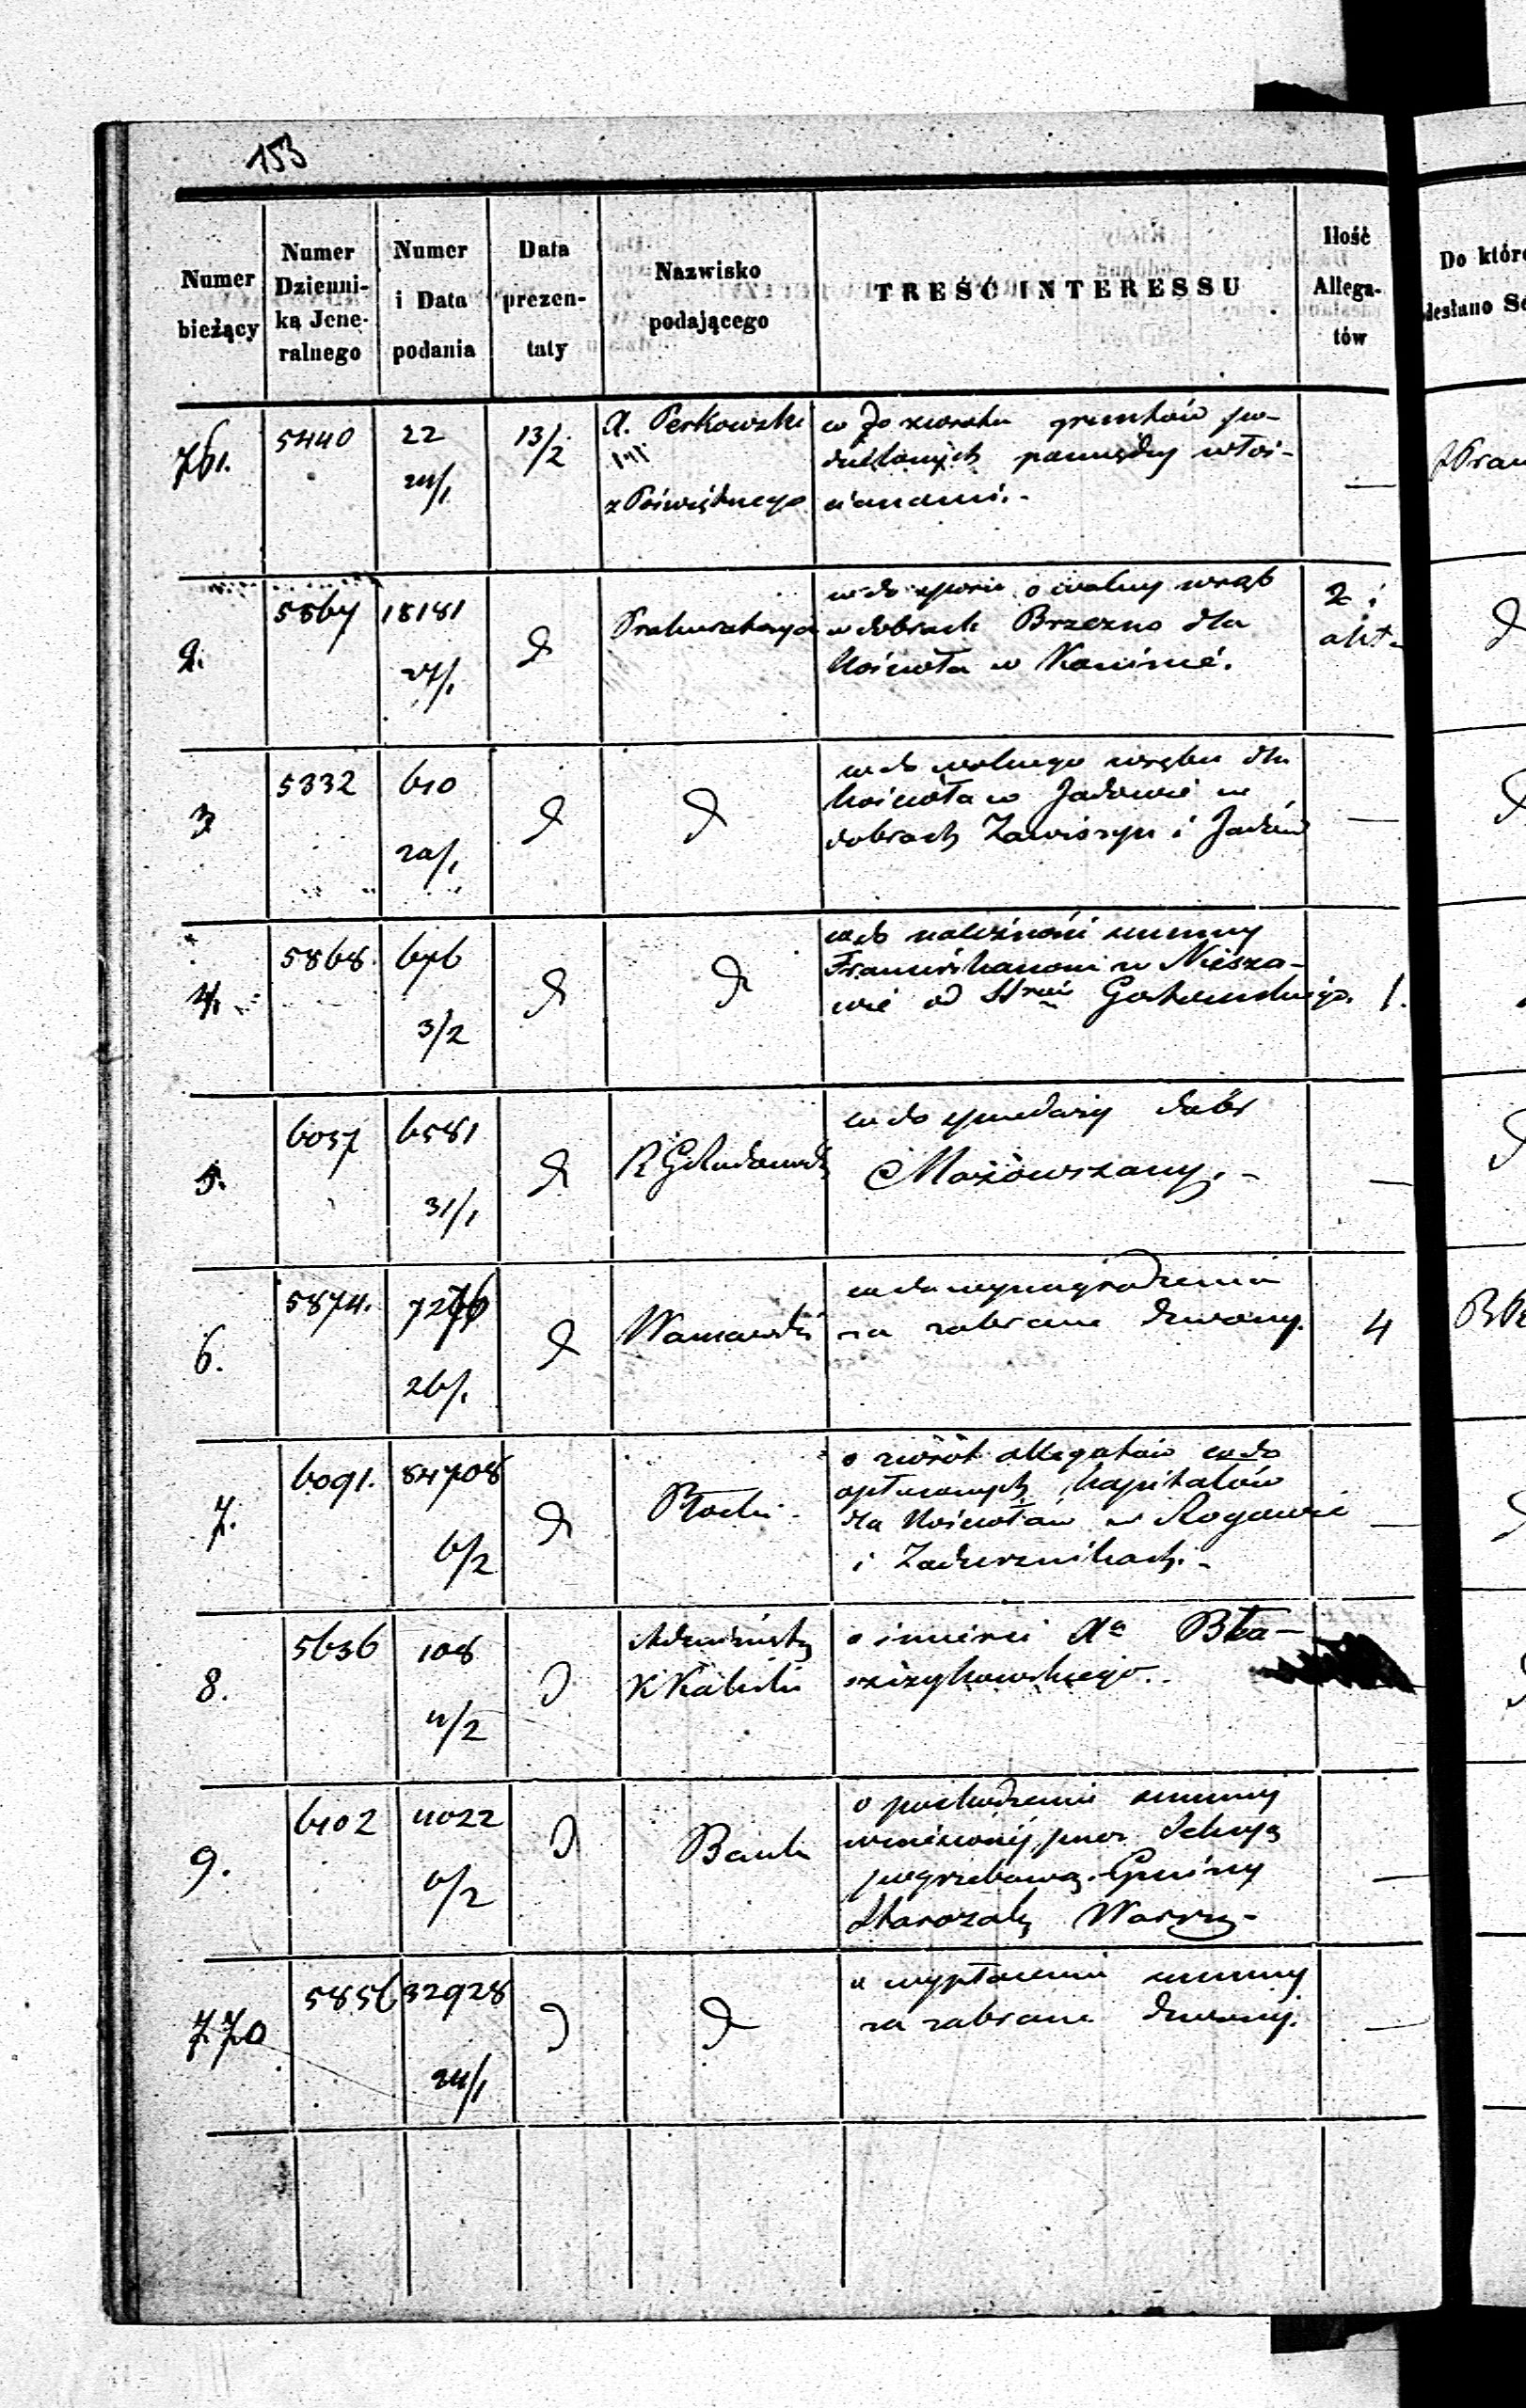 153
Numer bieżący
Numer Dzienni-ka Jene-ralnego
Numer i Data podania
Data prezen-taty
Nazwisko podającego
TREŚĆ INTERESSU
Ilość Allega-tów
Do któr
desłano
761. 5440 22 24/1 13/2 X. Perkowski
z Poświętnego
co do zwrotu gruntów po-
dzielonych pomiędzy włoś-
cianami.-
—
2. 5867 18181 27/1 d Prokuratorya
co do sporu o wolny wrąb
w dobrach Brzezno dla
Kościoła w Koninie.
2 i
akt-
3 5332 610 d d
co do wolnego wrębu dla
kościoła w Jadowie w
dobrach Zawiszyn i Jadów
—
4. 5868 676 3/2 d d
co do należności summy
Franciszkanom w Niesza-
wie od
1.
5. 6037 6581 31/1 d R G Radomski
co do sprzedaży dóbr
Mazowszany.-
—
6. 5874. 26/1 d Warszawski
co do wynagrodzenia
za zabrane dzwony.
4
7. 6091. 84708 6/2 d Płocki-
o zwrót allegatów co do
opłaconych kapitałów
dla Kościołów w Rogowie
i Zadusznikach.-
—
8. 5636 108 11/2 d Administr
K Kaliski
o śmierci Xa Bła-
szczykowskiego.
9. 6102 11022 6/2 d Bank
o pochodzeniu summy
wniesionéj przez
pogrzebową Gminy
Starozak Warsz-
—
770 5856 32928 24/1 d d
o wypłaceniu summy
za zabrane dzwony.
—